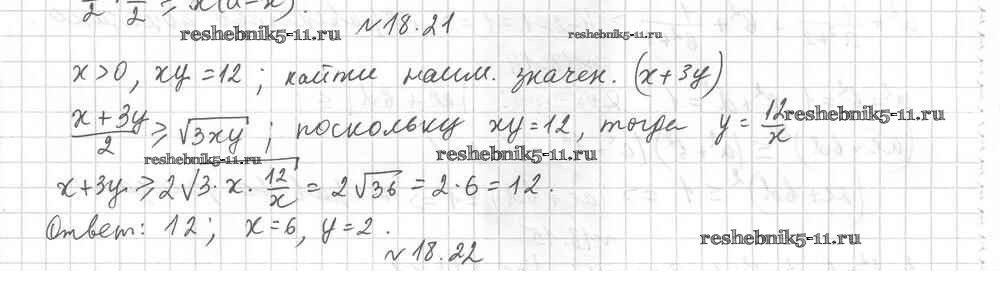 a/2 · a/2 ≥ x(a-x).
№18.21
reshebnik5-11.ru
reshebnik5-11.ru
x>0, xy=12; найти наим. значен. (x+3y)
(x+3y)/2 ≥ √3xy; поскольку xy=12, тогда y = 12/x
reshebnik5-11.ru
reshebnik5-11.ru
reshebnik5-11.ru
x+3y ≥ 2√3·x·12/x = 2√36 = 2·6 = 12.
Ответ: 12; x=6, y=2.
reshebnik5-11.ru
№18.22